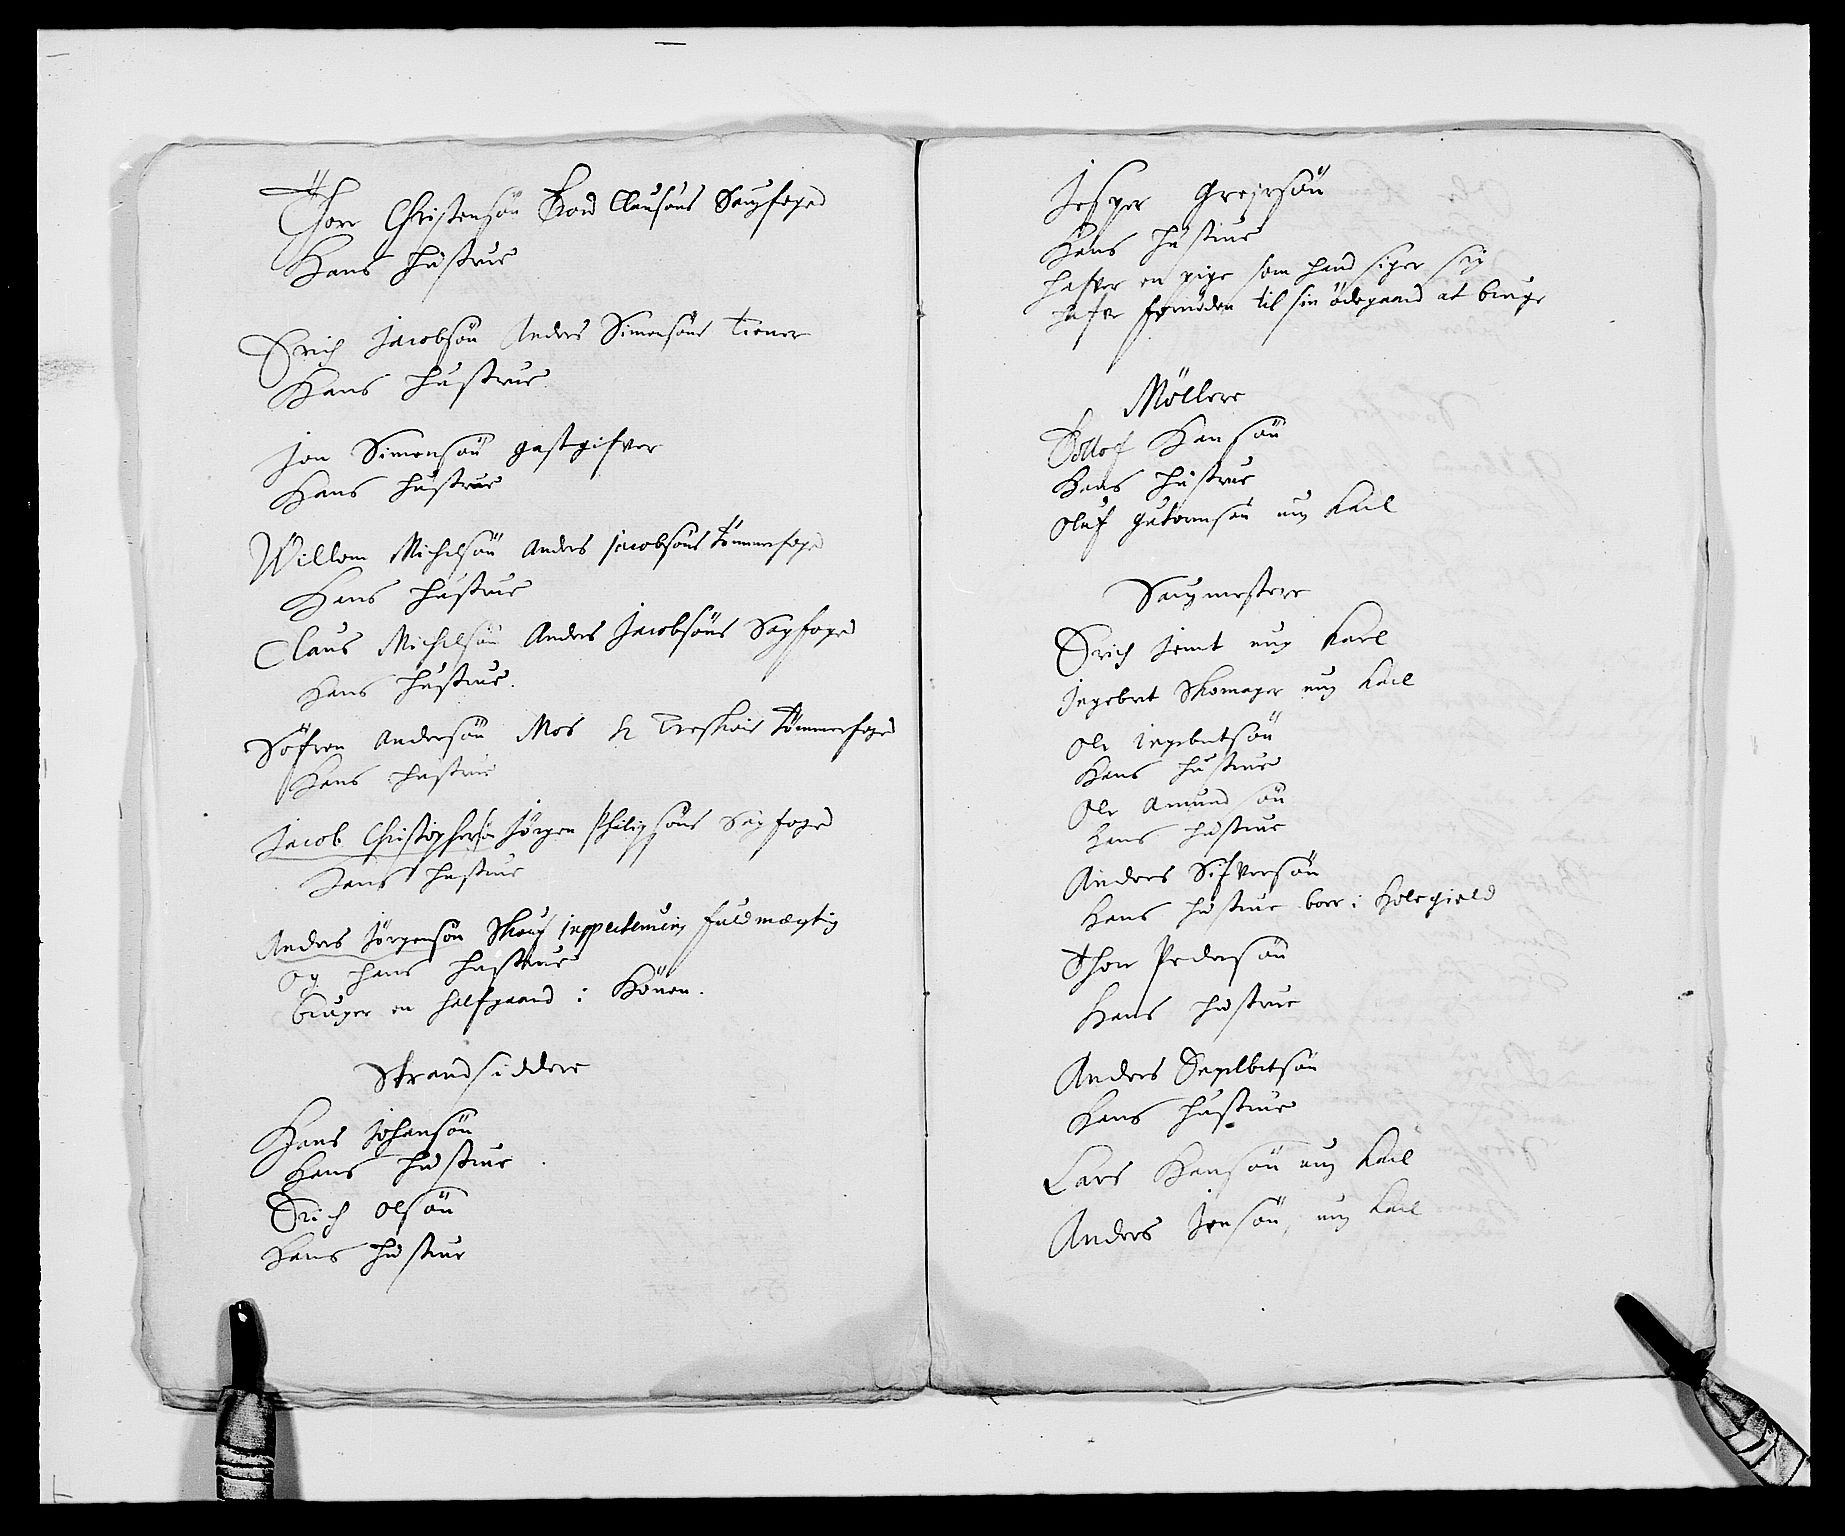 Thore Christensön Bord Clausöns Saugfoged
Hans hustrue
Erich Jacobsön Anders Simensöns tiener
Hans hustrue
Jon Simensön gastgifver
Hans hustrue
Willom Michelsön Anders Jacobsöns tömmerfoged
Hans hustrue
Claus Michelsön Anders Jacobsöns Sagfoged
Hans hustrue.
Söfren Andersön Mos tömmerfoged
Hans hustrue
Jacob Christophersön Jörgen Philipsöns Sagfoged
Hans hustrue
Anders Jörgensön Skougs fuldmægtig
og hans hustrue
bruger en halfgaard i Könen.
Strandsiddere
Hans Johansön
Hans hustrue
Erich Olsön
Hans hustrue
Jesper Grejersön
Hans hustrue
hafver en pige som hand siger sig
hafve fornöden til sin ödegaard at bruge
Möllere
Hansön
Hans hustrue
Oluf Gutormsön ung karl
Saugmestere
Erich Jemt ung karl
Ingebret Skomager ung karl
Ole Ingebretsön
Hans hustrue
Ole Amundsön
Hans hustrue
Anders Sifversön
Hans hustrue boer i Holegield
Thore Pedersön
Hans hustrue
Anders Engelbretsön
Hans hustrue
Lars Hansön ung karl
Anders Jensön, ung karl